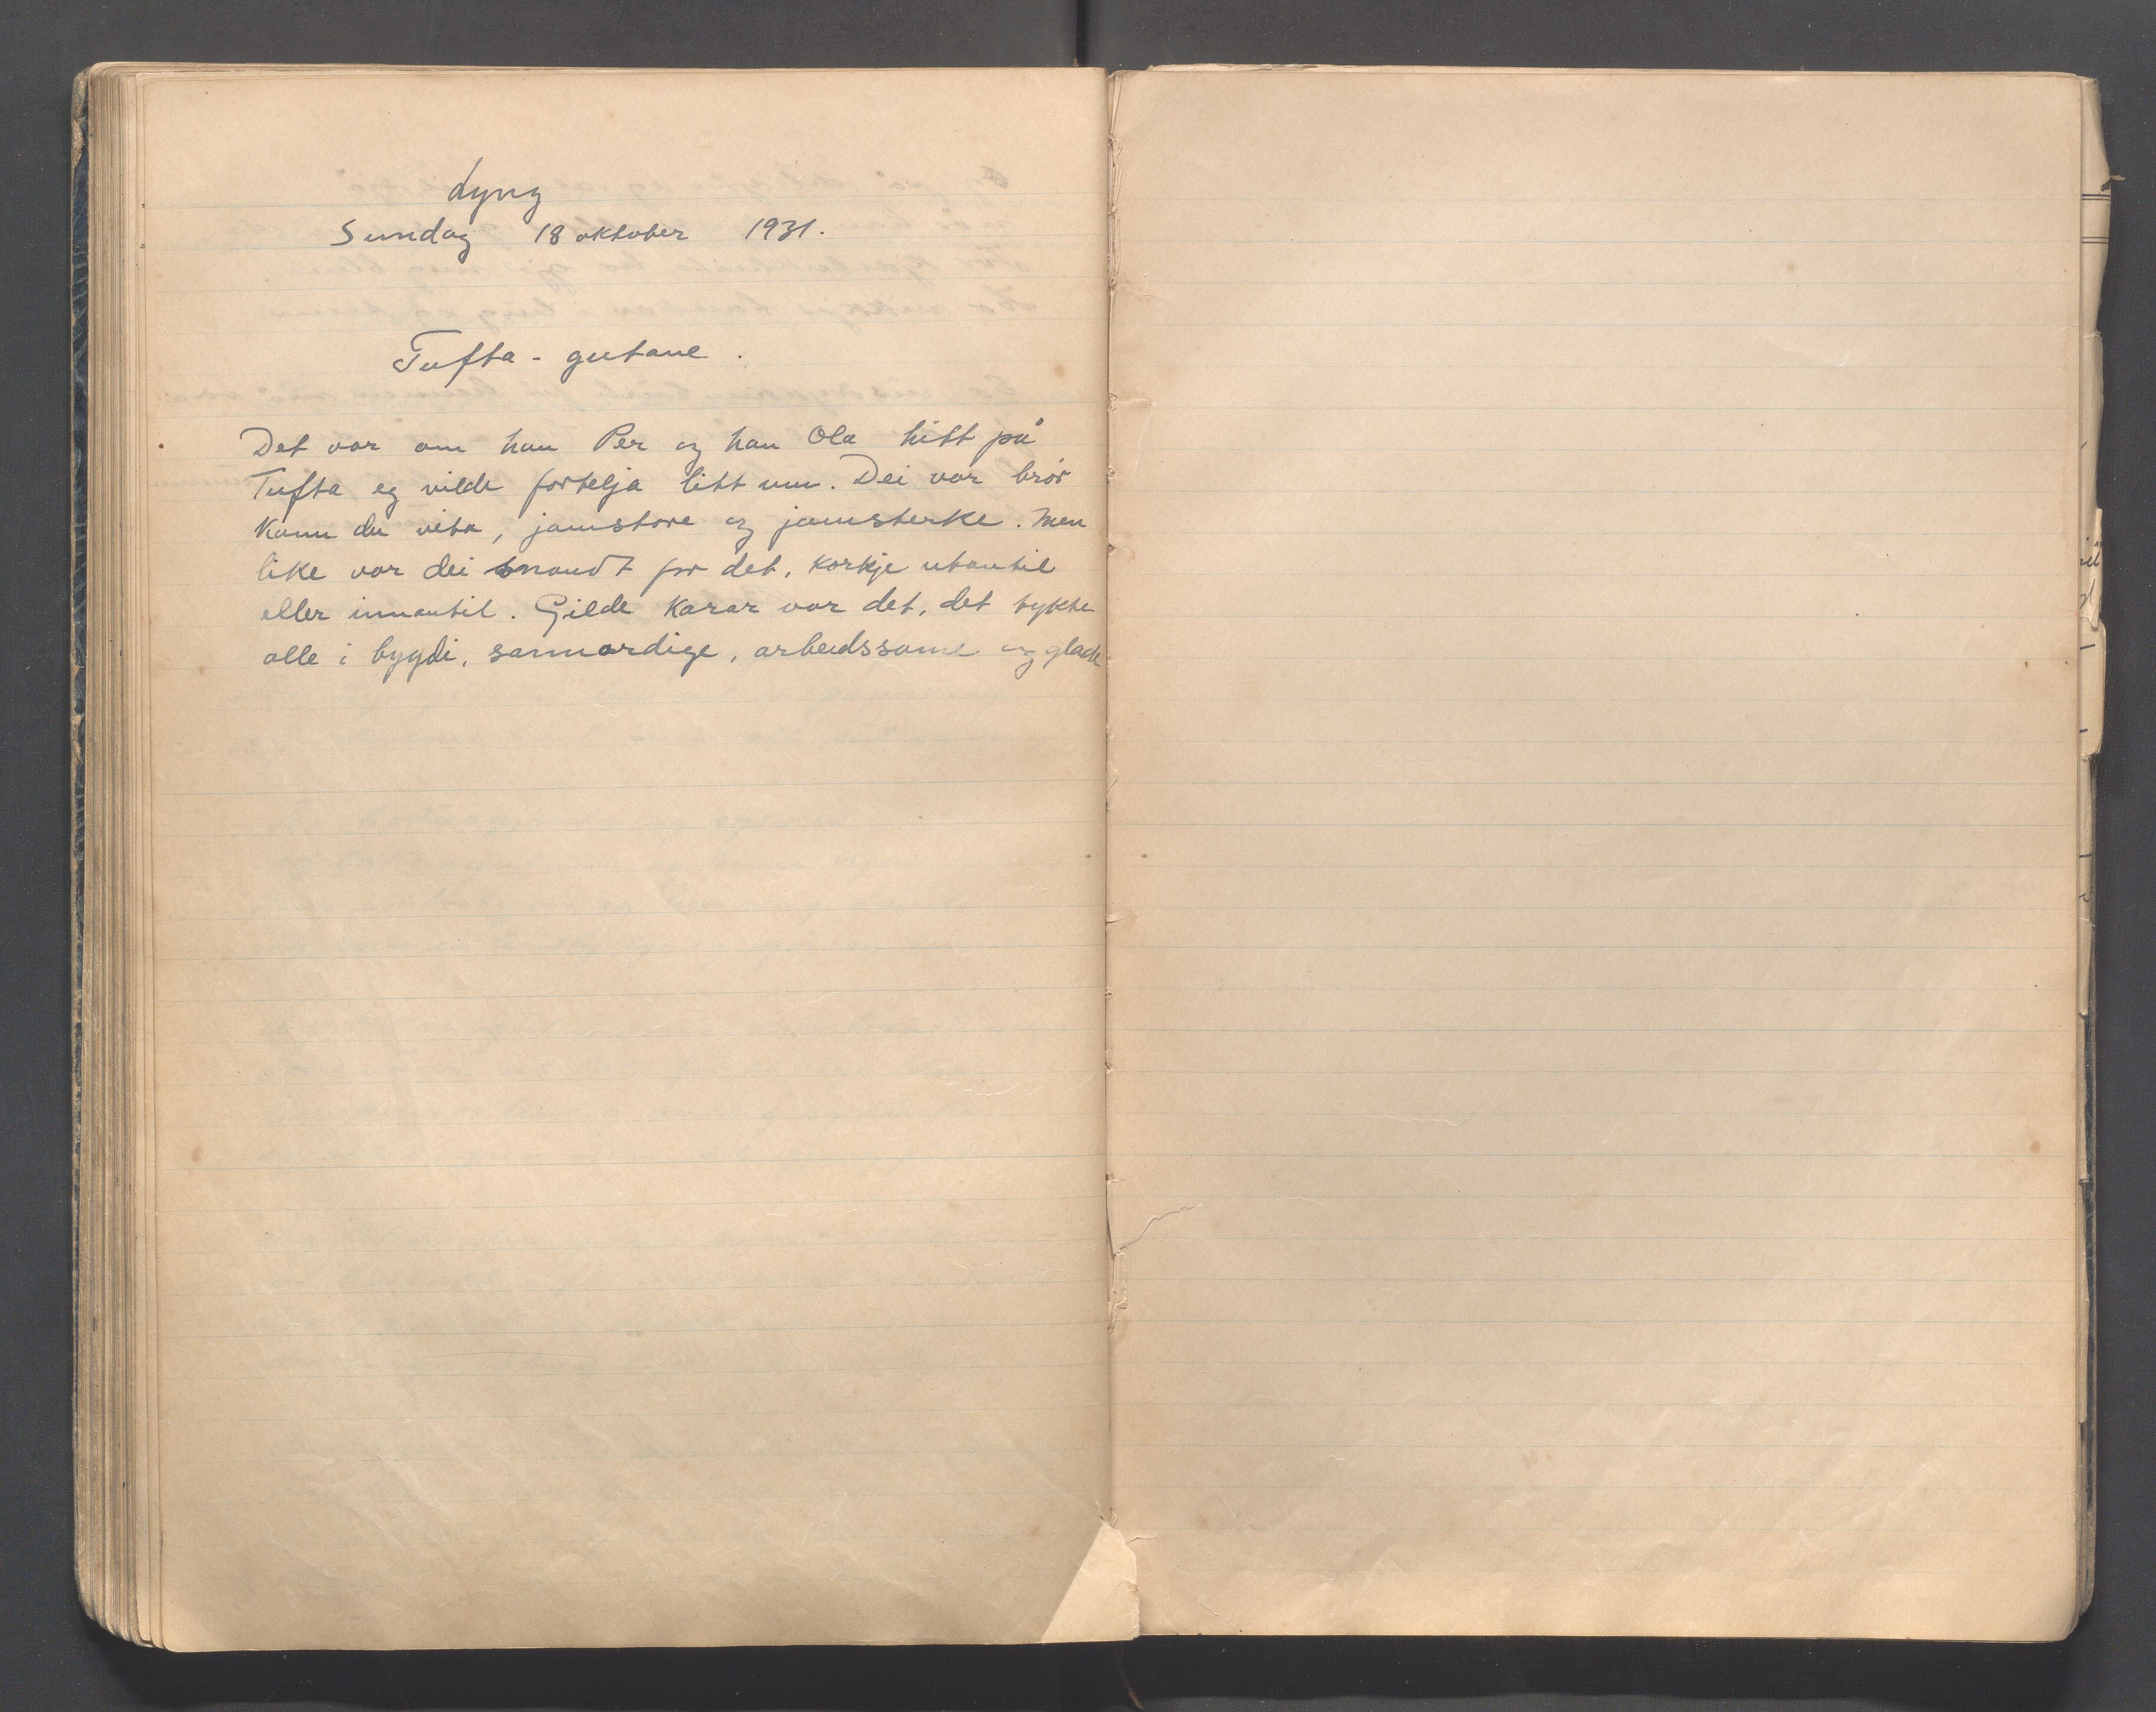 Lyng
Sundag 18 oktober 1931.
Tufta - gutane.
Det var om han Per og han Ola hitt på
Tufta eg vilde fortelja litt um. Dei var brør
kann du vita, jamstore og jamsterke. Men
like var dei snaudt for det, korkje utantil
eller innantil. Gilde karar var det, det tykte
alle i bygdi, sannordige, arbeidssame og glade